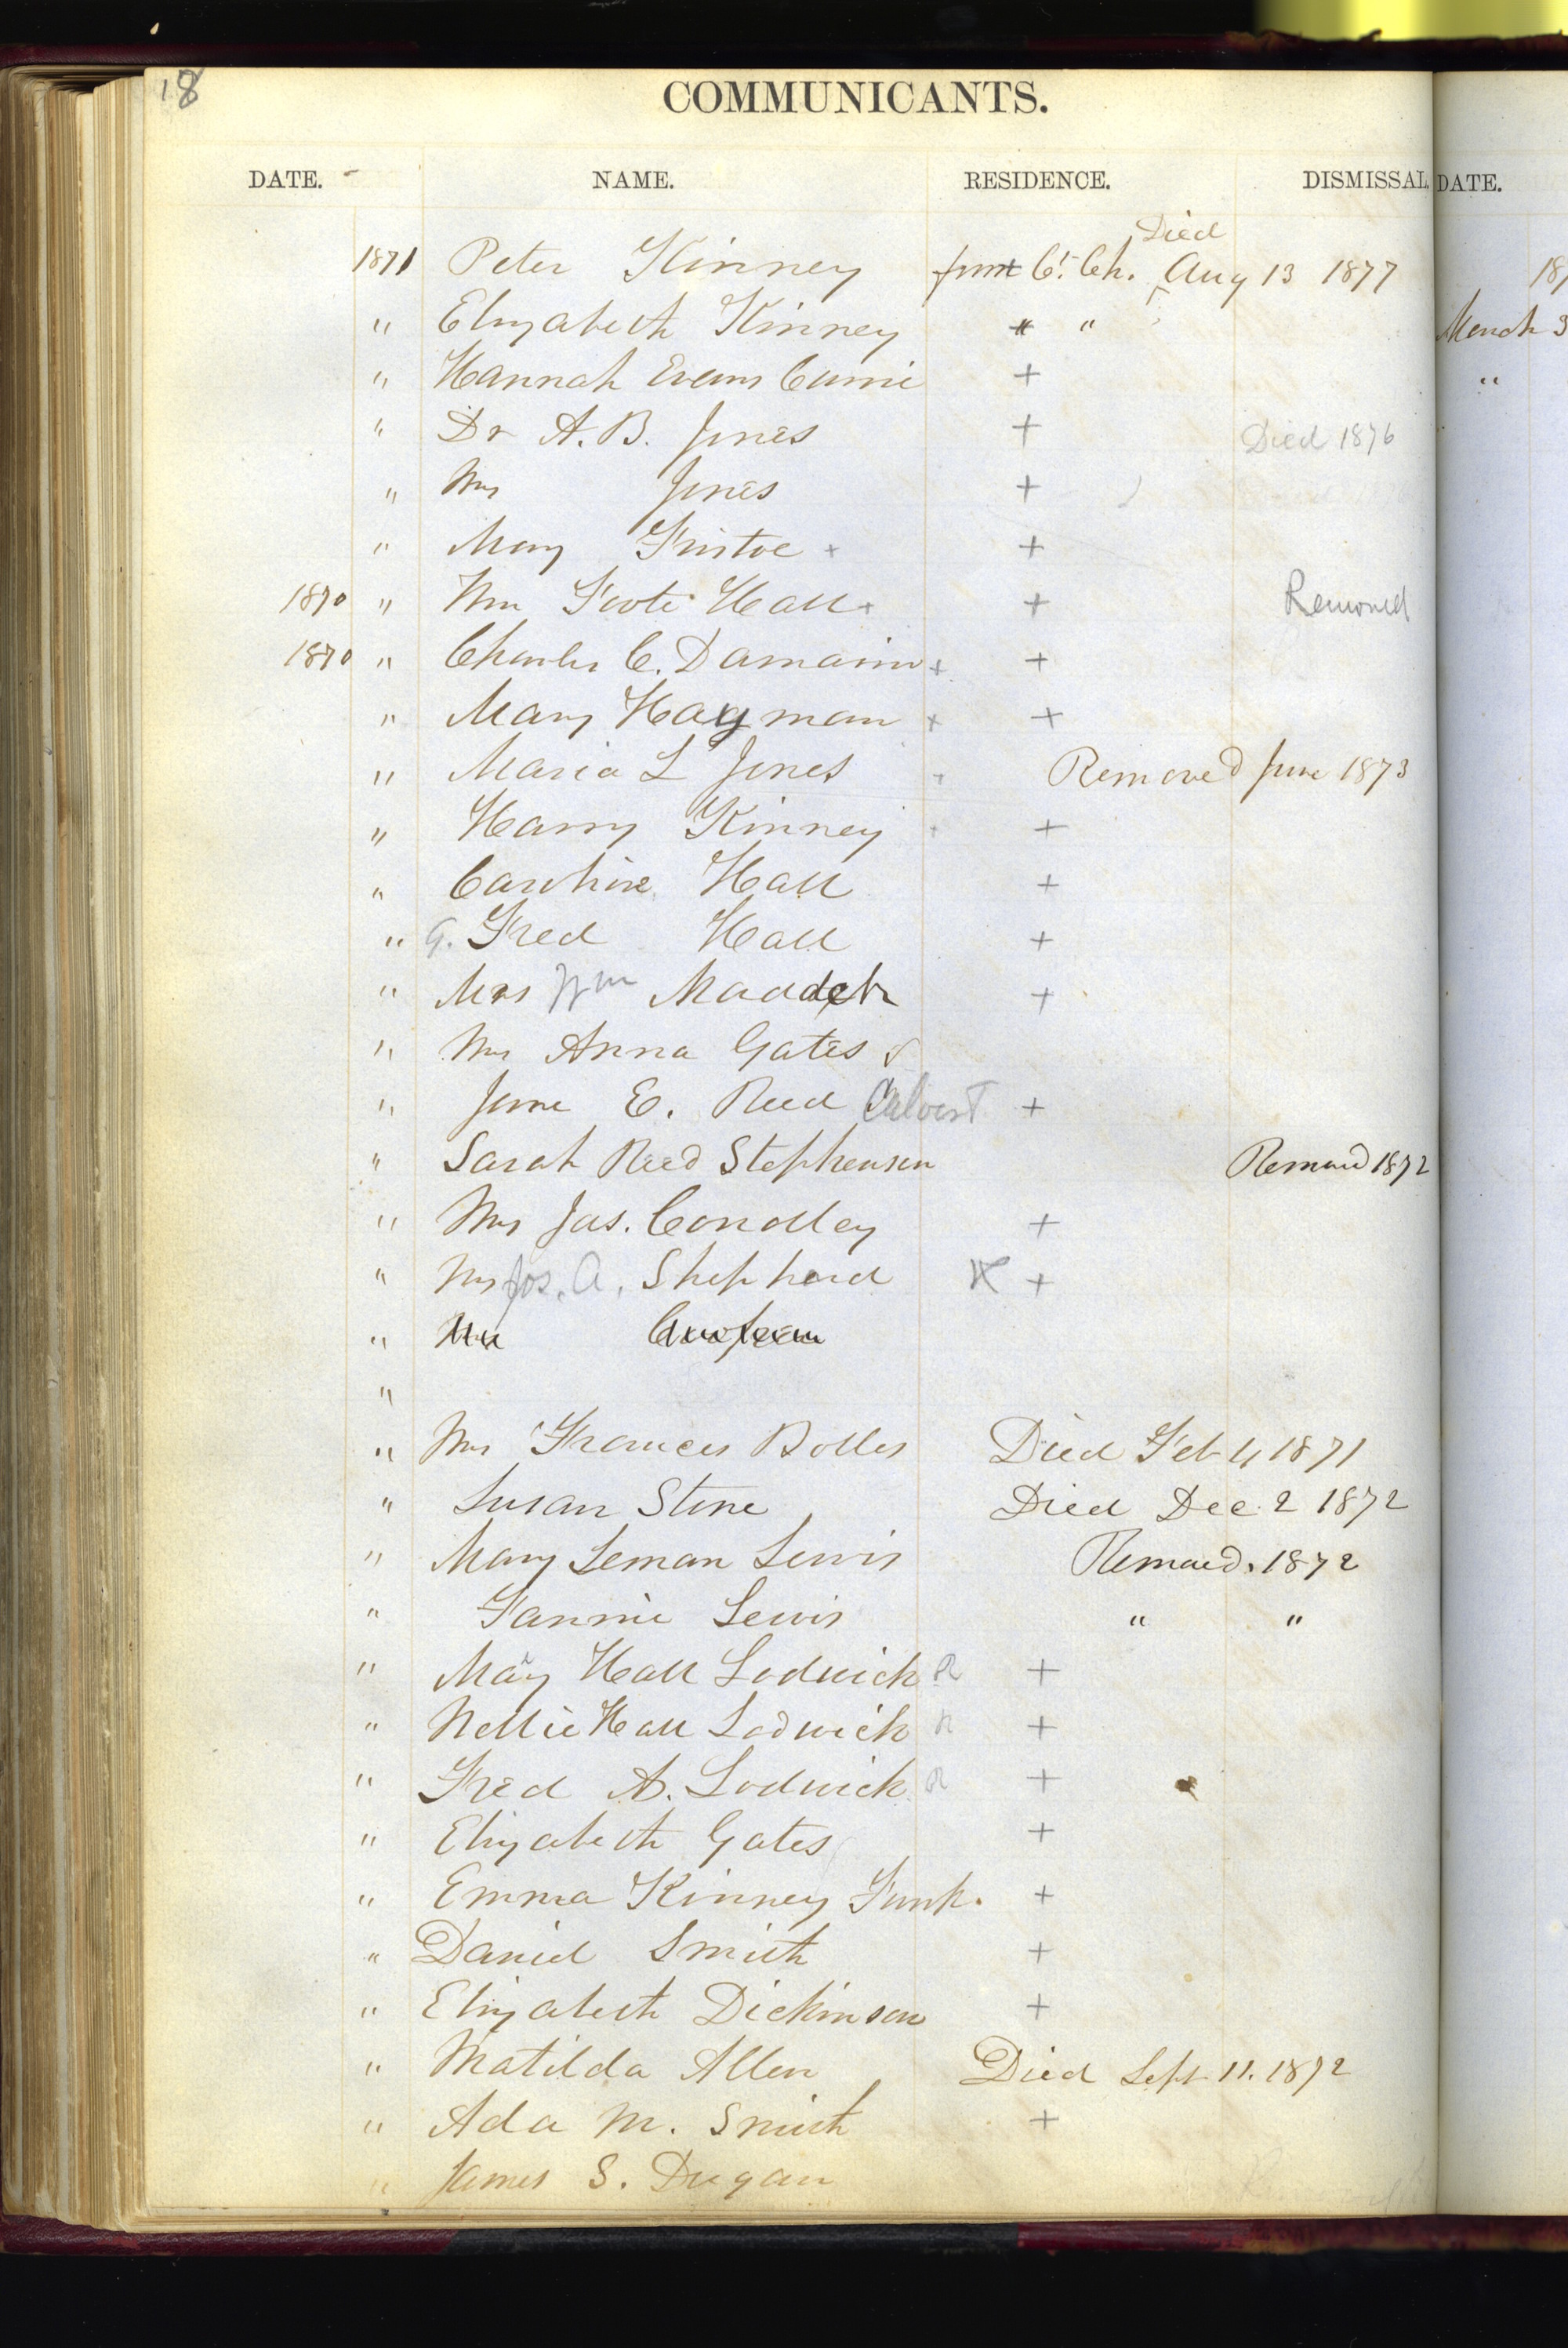 18
COMMUNICANTS.
DATE. NAME. RESIDENCE. DISMISSAL DATE.
Died
1871 Peter Kinney from Ct. Ch. Aug 13 1877 187
" Elizabeth Kinney " " March 3
" Hannah Evans Currie + "
" Dr A. B. Jones + Died 1876
" Mrs Jones +
" Mary Fristoe + +
1870 " Wm Foote Hall + + Removed
1870 " Charles C. Damarin + +
" Mary Hayman + +
" Maria L Jones + Removed June 1873
" Harry Kinney + +
" Caroline Hall +
" G. Fred Hall +
" Mrs Wm Maddeh +
" Mrs Anna Gates
" Jane E. Reed Calvert +
" Sarah Reed Stephenson Removed 1872
" Mrs Jas. Conolley +
" Mrs Jos. A. Shepherd +
" Mrs
"
" Mrs Frances Bolles Died Feb 4 1871
" Susan Stone Died Dec. 2 1872
" Mary Leman Lewis Removed. 1872
" Fannie Lewis " "
" May Hall Lodwick R +
" Nellie Hall Lodwick R +
" Fred A. Lodwick R +
" Elizabeth Gates +
" Emma Kinney Funk. +
" Daniel Smith +
" Elizabeth Dickinson +
" Matilda Allen Died Sept 11. 1872
" Ada M. Smith +
" James S. Dugan